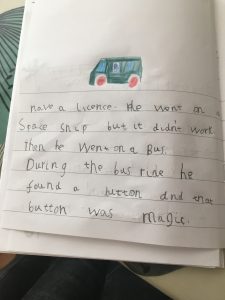 have a licence. He went on a
Space ship but it didn't work.
Then he went on a Bus.
During the bus ride he
found a button and that
button was magic.